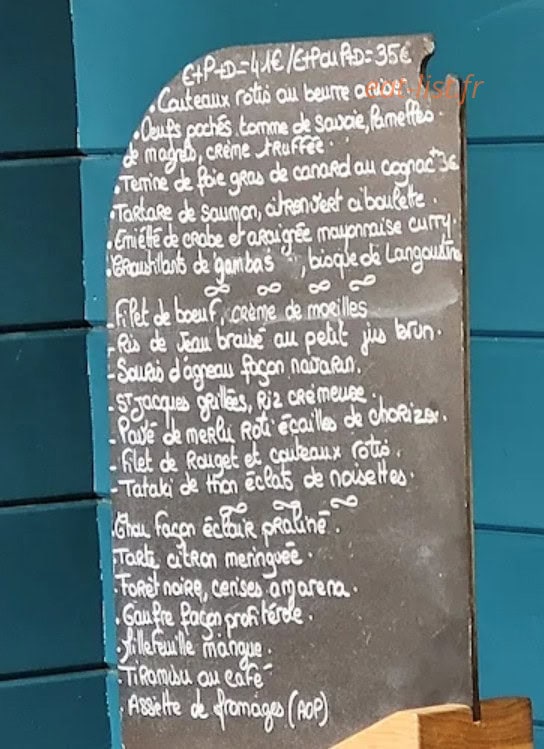 E+P+D=41€/E+P ou P+D=35€
eat-list.fr
• Couteaux rotis au beurre
• Oeufs pochés, tomme de savoie, Paneffes
de magrets, crème truffée.
• Terrine de foie gras de canard au cognac +3€
• Tartare de saumon, citron vert ciboulette.
• Emietté de crabe et araignée mayonnaise curry.
• Croustillants de gambas, bisque de Langoustine
- Filet de boeuf, crème de morilles
- Ris de veau braisé au petit jus brun.
- Souris d'agneau façon navarin.
- St Jacques grillées, Riz crémeuse.
- Pavé de merlu Roti écailles de chorizo.
- Filet de Rouget et couteaux rotis.
- Tataki de thon éclats de noisettes.
• Chou façon éclair praliné.
• Tarte citron meringuée.
• Forêt noire, cerises amarena.
• Gaufre façon profiterole.
• Millefeuille mangue.
• Tiramisu au café
• Assiette de fromages (AOP)